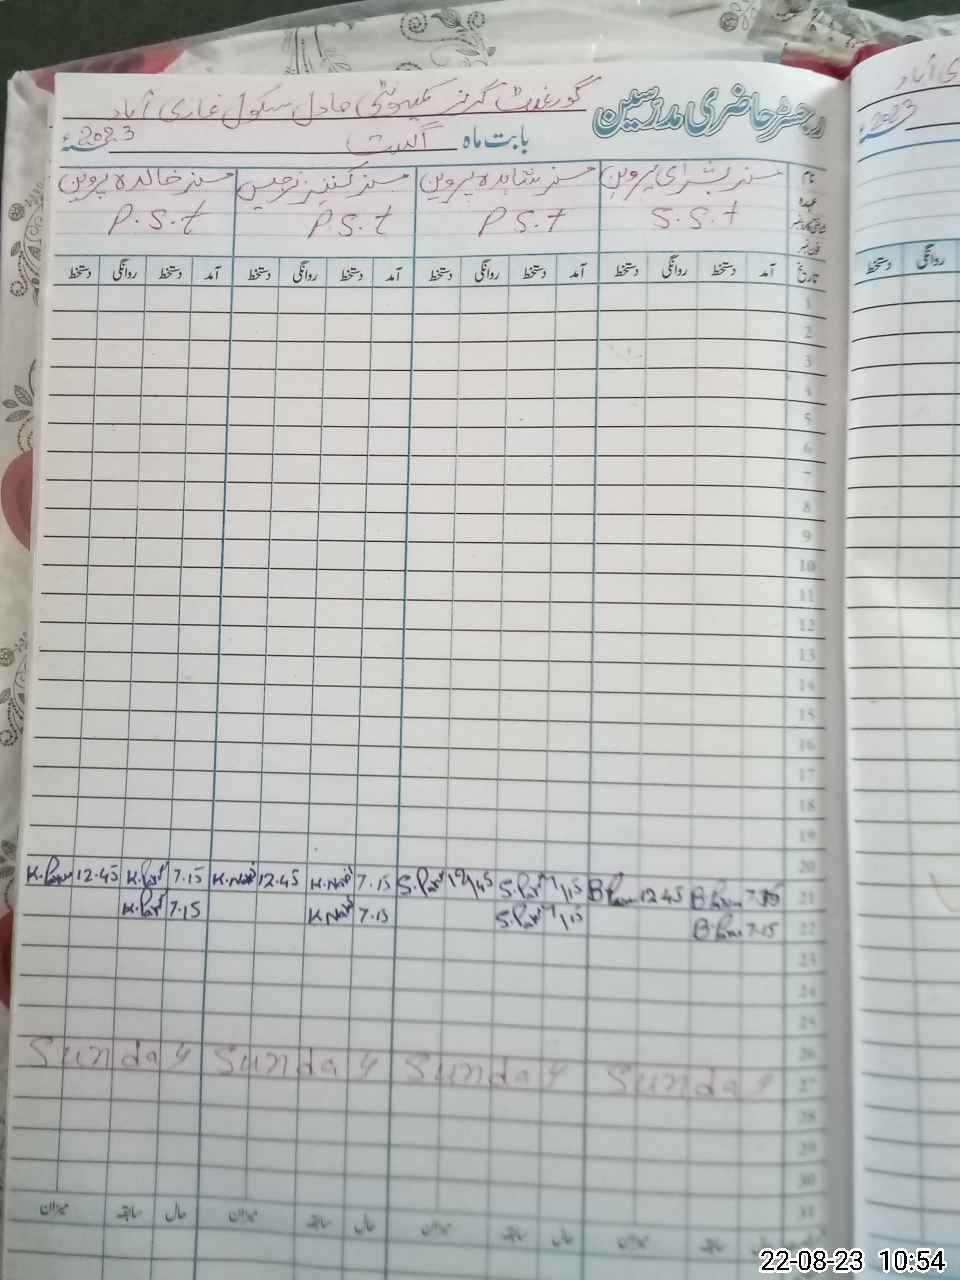 رجسٹر حاضری مدرسین
گورنمنٹ گرلز کمیونٹی ماڈل سکول غازی آباد
بابت ماہ اگست 2023ء
نام مسز بشرای پروین مسز شاہدہ پروین مسز کنیز نرجس مسز خالدہ پروین
عہدہ S.S.t P.S.t P.S.t P.S.t
تاریخ آمد دستخط روانگی دستخط آمد دستخط روانگی دستخط آمد دستخط روانگی دستخط آمد دستخط روانگی دستخط
1
2
3
4
5
6
7
8
9
10
11
12
13
14
15
16
17
18
19
20
K.Parv 12.45 K.Parv 7.15 K.Nar 12.45 K.Nar 7.15 S.Parv 12/45 S.Parv 7/15 B Parvn 12.45 B Parvn 7.15 21
K.Parv 7.15 K.Nar 7.15 S.Parv 7/15 B Parvn 7.15 22
23
24
25
26
Sunday Sunday Sunday Sunday 27
28
29
30
31
حال سابقہ میزان حال سابقہ میزان حال سابقہ میزان حال سابقہ میزان
آباد
2023
روانگی دستخط
22-08-23 10:54